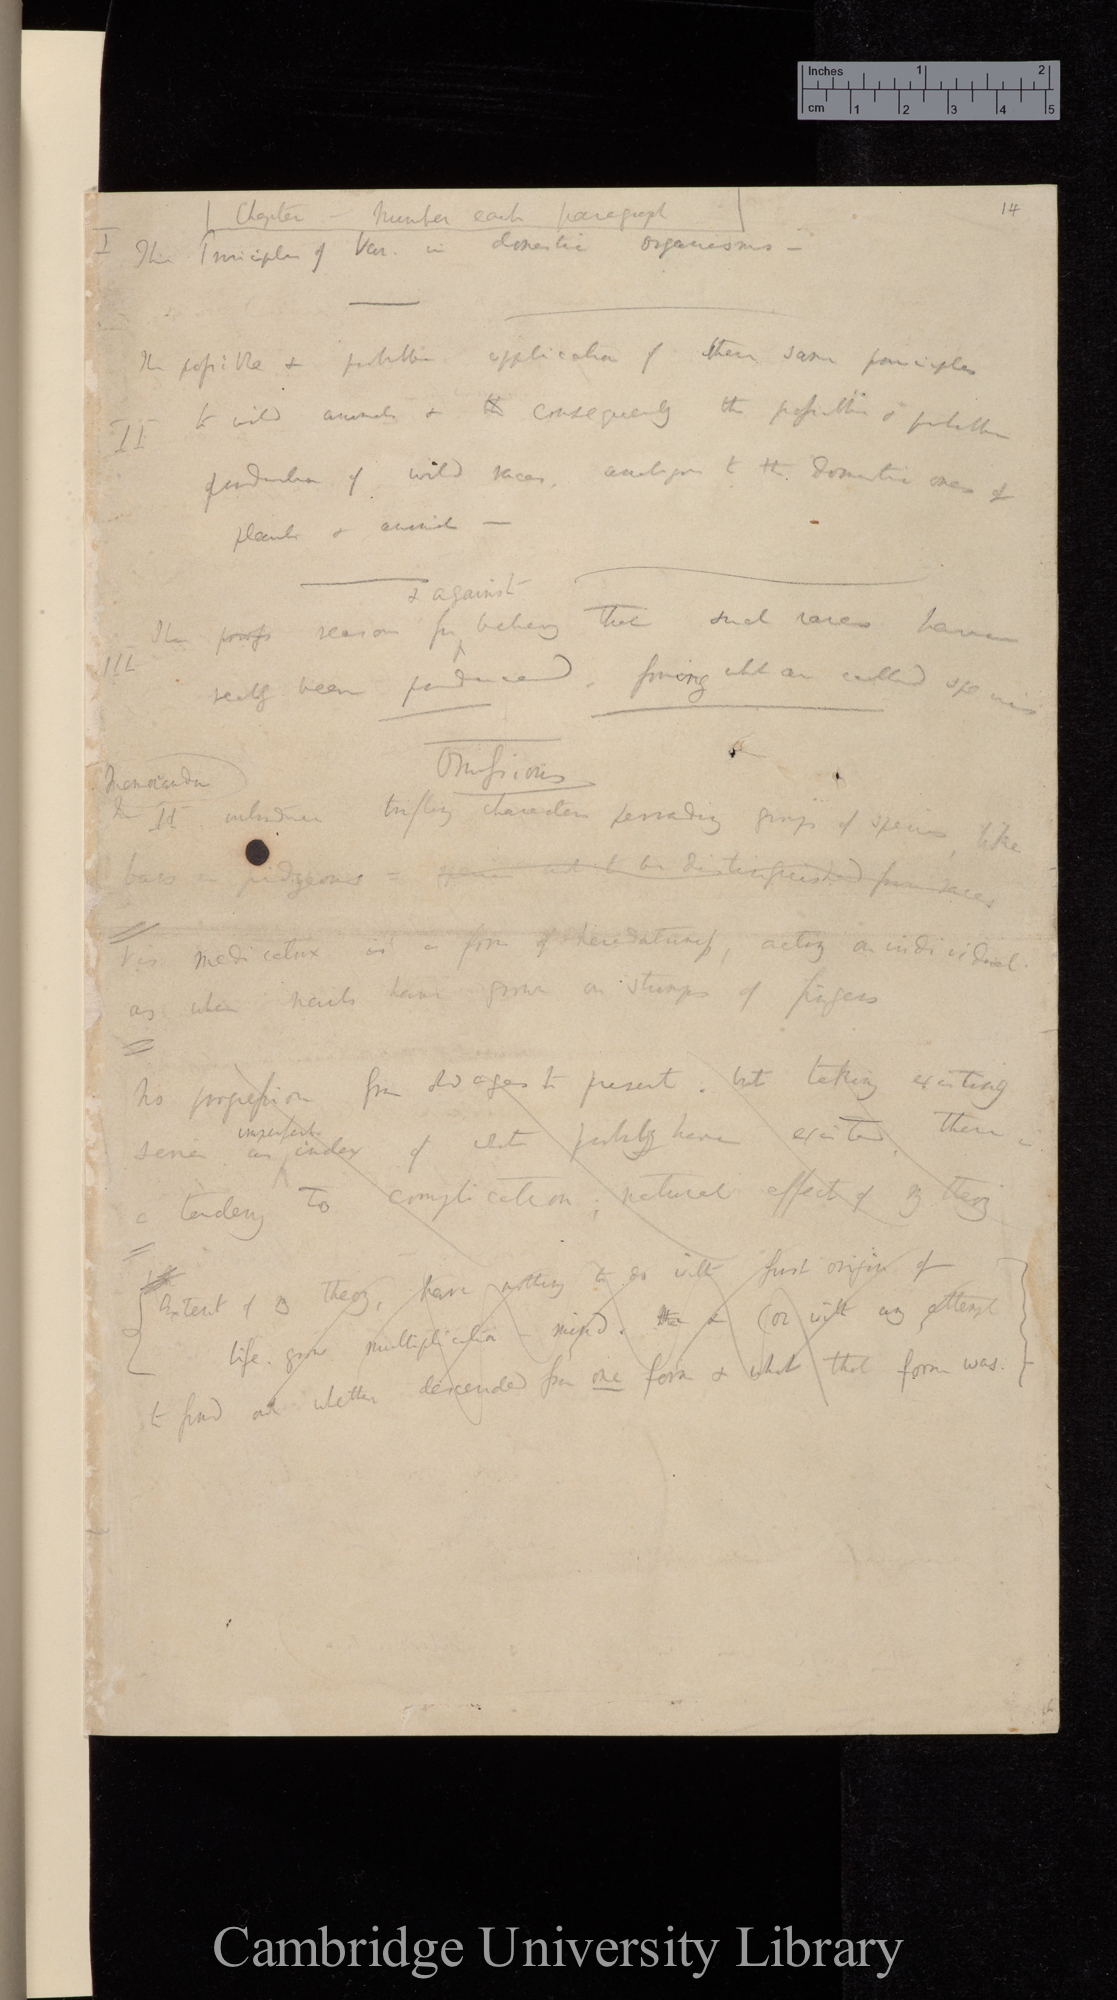 Inches 1 2
cm 1 2 3 4 5
14
Chapter – Number each paragraph
I The Principles of Var. in domestic organisms –
The possible & probable application of these same principles
II to wild animals & consequently the possible & probable
production of wild races, analogous to the domestic ones of
plants & animals –
& against
III The reasons for believing that such races have
really been produced, forming what are called species
Omissions
Memoranda
In II introduce trifling characters pervading groups of species, like
bars in pidgeons = to be distinguished from races
Vis medicatrix is a form of hereditariness, acting on individual.
as when nails have grown on stumps of fingers
No progression from old ages to present. but taking existing
imperfect
series as index of what probably have existed, there is
a tendency to complication, natural effect of my theory
Extent of my theory, have nothing to do with first origin of
life. grow multiplication – mind. & (or with any attempt
to find out whether descended from one form & what that form was.
Cambridge University Library